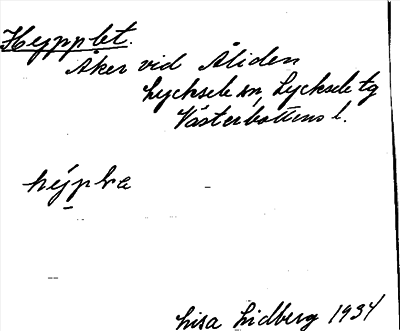 Heppbet.
Åker vid Åliden
Lycksele sn, Lycksele tg
Västerbottens l.
Lisa Lidberg 1934